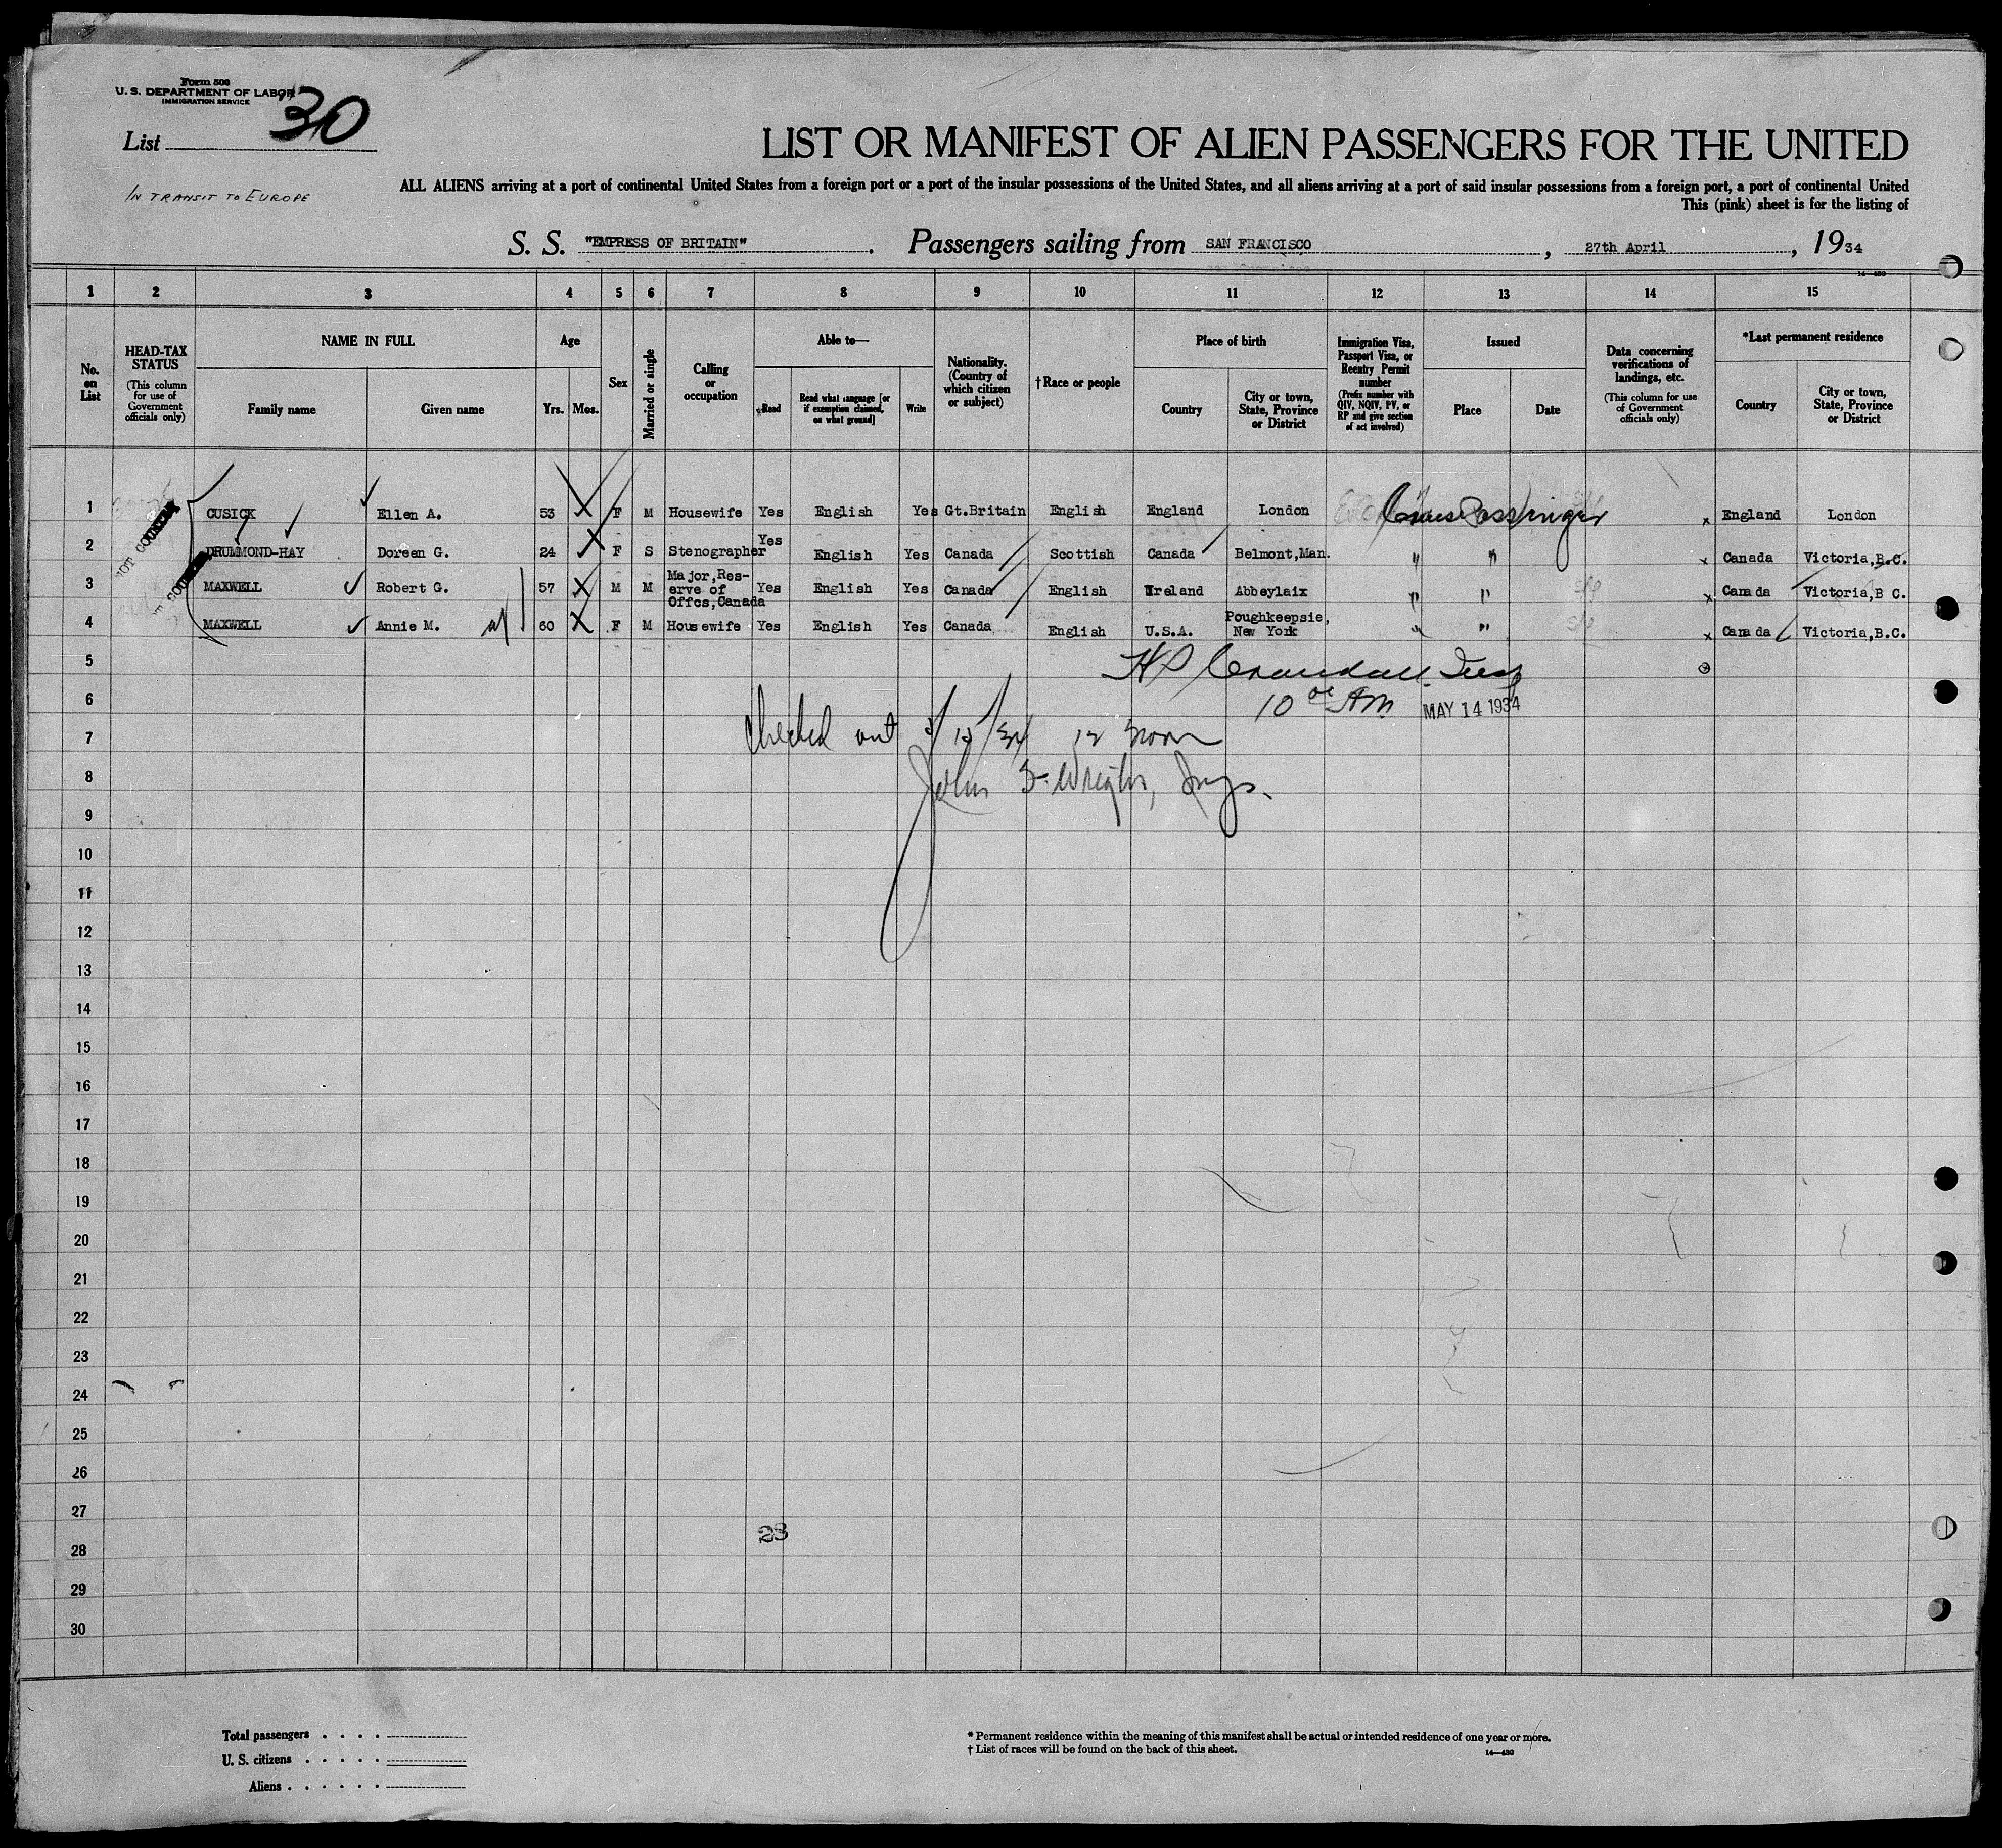 Form 500
U. S. DEPARTMENT OF LABOR
IMMIGRATION SERVICE
List 30
IN TRANSIT TO EUROPE
LIST OR MANIFEST OF ALIEN PASSENGERS FOR THE UNITED
ALL ALIENS arriving at a port of continental United States from a foreign port or a port of the insular possessions of the United States, and all aliens arriving at a port of said insular possessions from a foreign port, a port of continental United
This (pink) sheet is for the listing of
S. S. "EMPRESS OF BRITAIN". Passengers sailing from SAN FRANCISCO, 27th April, 1934
14—430
1 2 3 4 5 6 7 8 9 10 11 12 13 14 15
No. on List
HEAD-TAX STATUS (This column for use of Government officials only)
NAME IN FULL
Family name Given name
Age
Yrs. Mos.
Sex
Married or single
Calling or occupation
Able to—
Read Read what language [or if exemption claimed, on what ground] Write
Nationality. (Country of which citizen or subject)
† Race or people
Place of birth
Country City or town, State, Province or District
Immigration Visa, Passport Visa, or Reentry Permit number (Prefix number with QIV, NQIV, PV, or RP and give section of act involved)
Issued
Place Date
Data concerning verifications of landings, etc. (This column for use of Government officials only)
*Last permanent residence
Country City or town, State, Province or District
1 CUSICK Ellen A. 53 F M Housewife Yes English Yes Gt.Britain English England London Cruise Passenger x England London
2 DRUMMOND-HAY Doreen G. 24 F S Stenographer Yes English Yes Canada Scottish Canada Belmont,Man. " " x Canada Victoria,B.C.
3 MAXWELL Robert G. 57 M M Major,Reserve of Offcs,Canada Yes English Yes Canada English Ireland Abbeylaix " " x Canada Victoria,B C.
4 MAXWELL Annie M. 60 F M Housewife Yes English Yes Canada English U.S.A. Poughkeepsie, New York " " x Canada Victoria,B.C.
NOT
5 H Crandall Insp
6 10 00 AM MAY 14 1934
7 Checked out 12 noon
8 John S. Wright, Insp.
9
10
11
12
13
14
15
16
17
18
19
20
21
22
23
24
25
26
27
23
28
29
30
Total passengers . . . .
U. S. citizens . . . . .
Aliens . . . . . .
* Permanent residence within the meaning of this manifest shall be actual or intended residence of one year or more.
† List of races will be found on the back of this sheet.
14—430